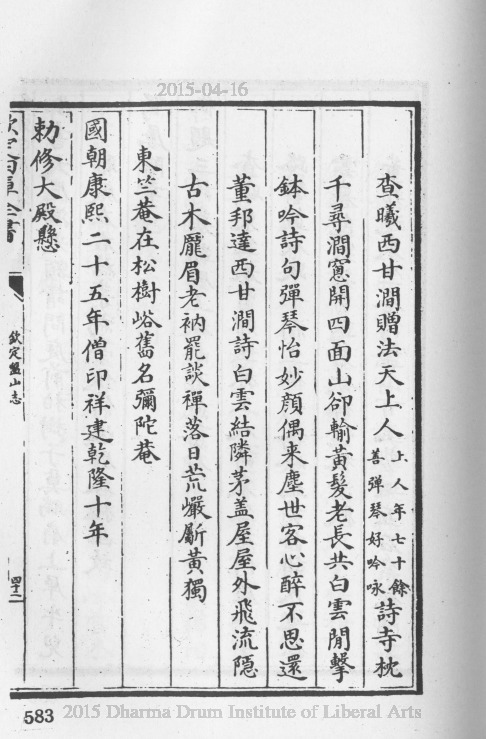 2015-04-16
查曦西甘澗贈法天上人上人年七十餘善彈琴好吟咏詩寺枕
千尋澗窻開四面山卻輸黃髮老長共白雲閒擊
鉢吟詩句彈琴怡妙顔偶来塵世客心醉不思還
董邦達西甘澗詩白雲結隣茅蓋屋屋外飛流隠
古木龎眉老衲罷談禪落日荒巖斸黃獨
東竺菴在松樹峪舊名彌陀菴
國朝康熙二十五年僧印祥建乾隆十年
勅修大殿懸
欽定四庫全書
欽定盤山志
四十二
583
2015 Dharma Drum Institute of Liberal Arts